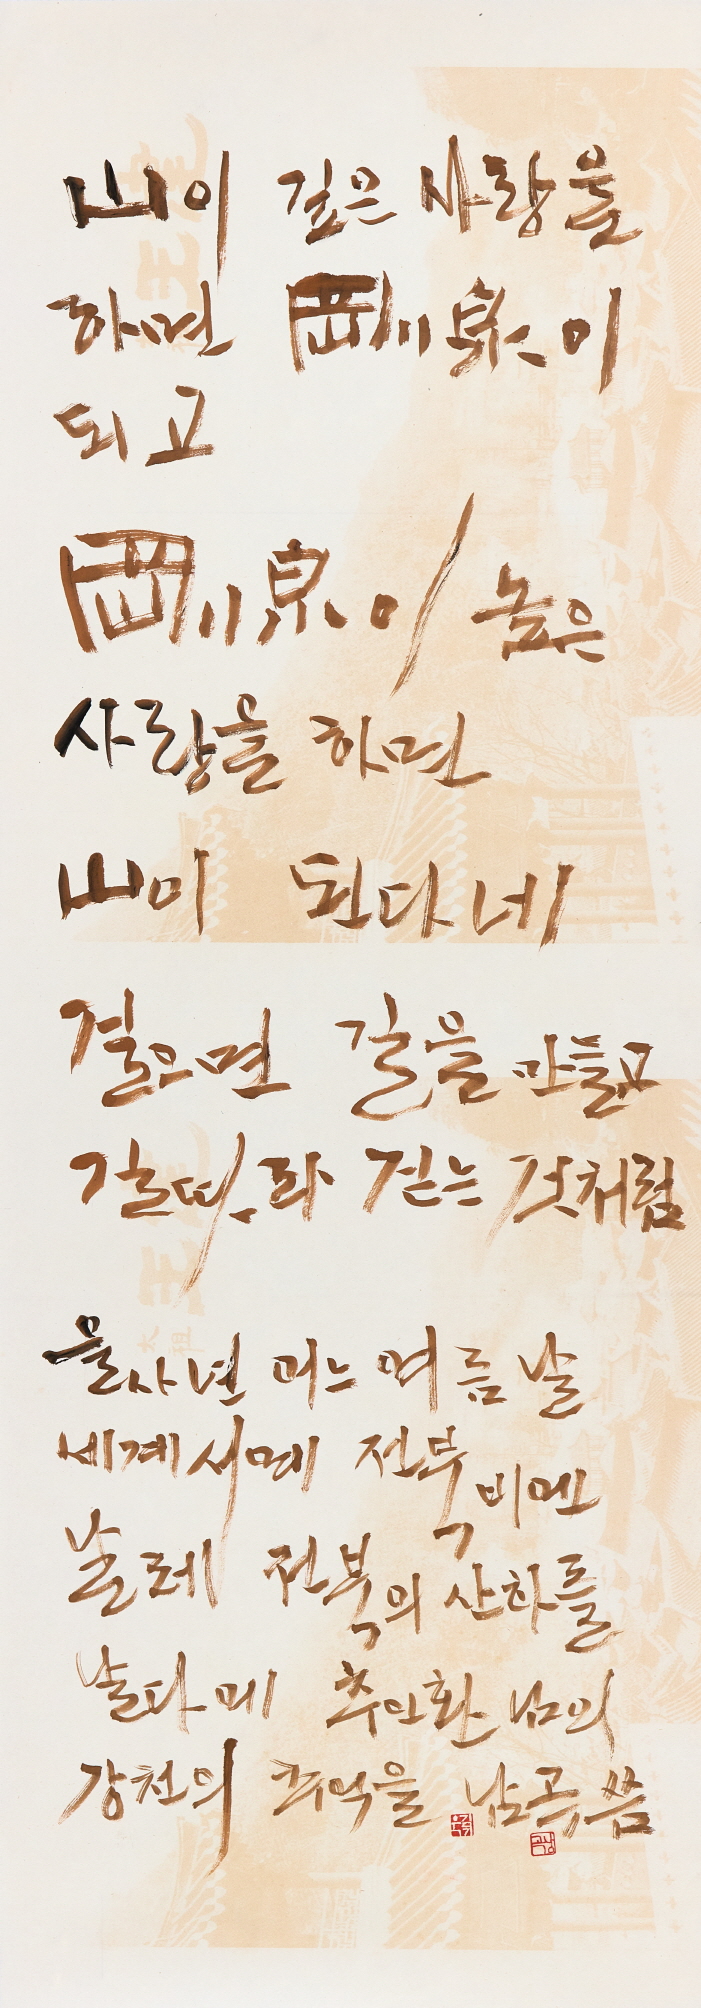 山이 깊은 사랑을
하면 岡川泉이
되고
岡川泉이 높은
사랑을 하면
山이 된다네
걸으면 길을 만들고
길따라 걷는 것처럼
을사년 어느 여름날
세계서예 전북비엔
날레 전북의 산하를
날다에 추인환님의
강천의 추억을 남곡 씀